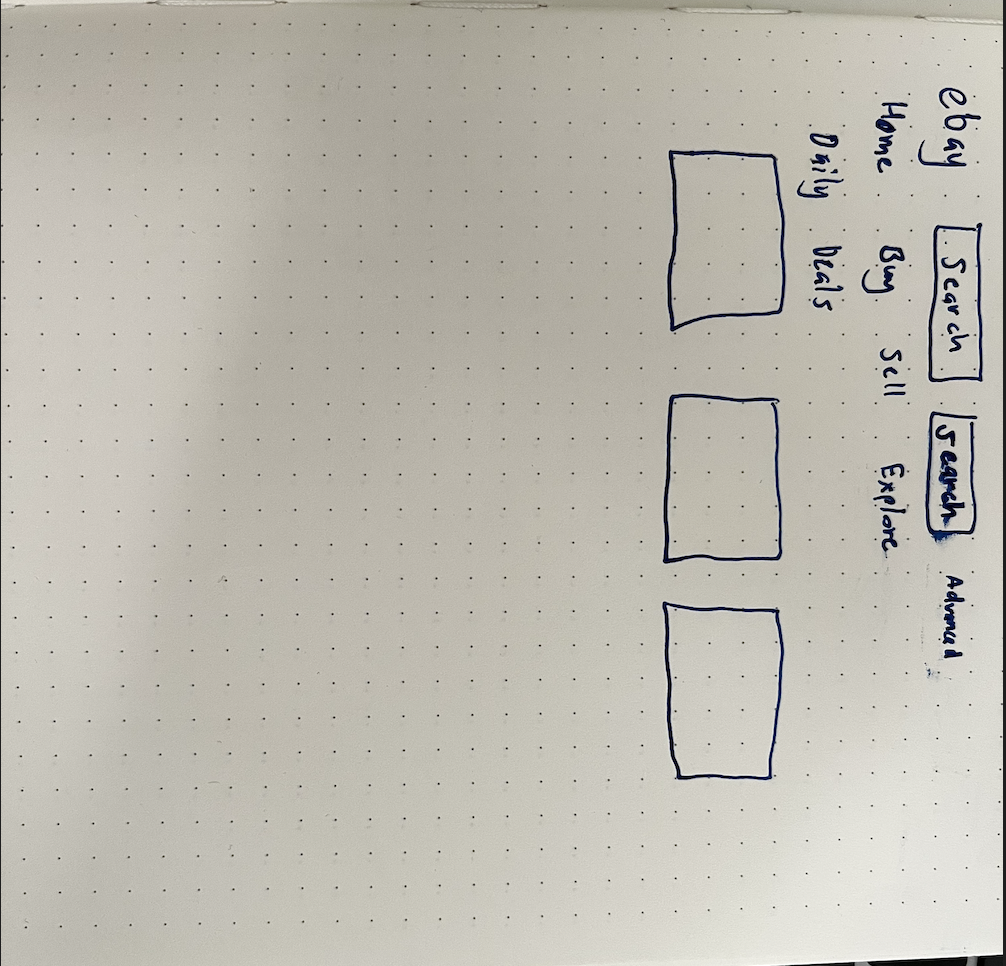 ebay Search Search Advanced
Home Buy Sell Explore
Daily Deals